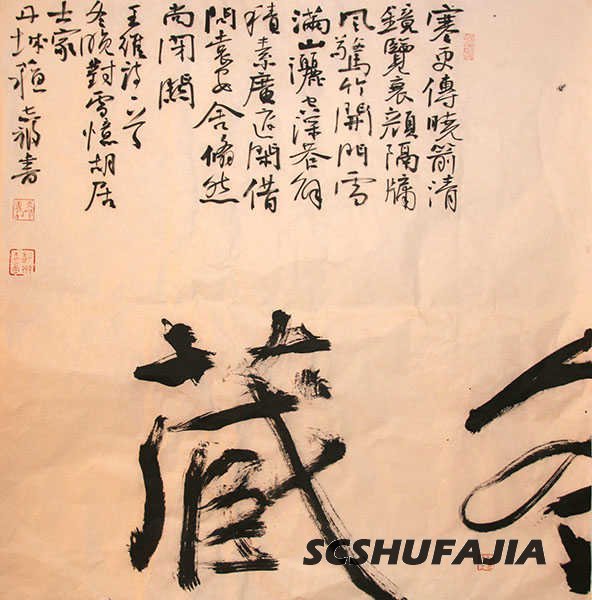 寒更傳曉箭清
鏡覽衰顏隔牖
風驚竹開門雪
滿山灑空深巷靜
積素廣庭閑借
問袁安舍翛然
尚閉關
王維詩一首
冬晚對雪憶胡居
士家
書
藏
SCSHUFAJIA